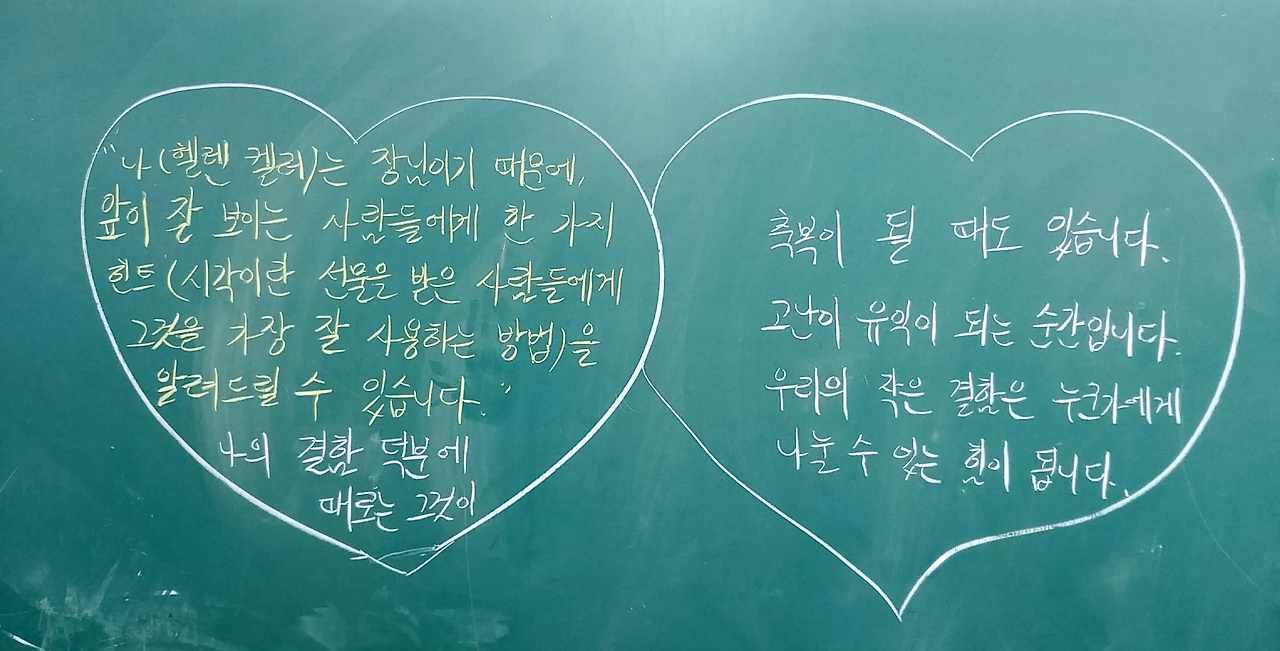 "나(헬렌 켈러)는 장님이기 때문에,
앞이 잘 보이는 사람들에게 한 가지
힌트(시각이란 선물을 받은 사람들에게
그것을 가장 잘 사용하는 방법)을
알려드릴 수 있습니다."
나의 결함 덕분에
때로는 그것이
축복이 될 때도 있습니다.
고난이 유익이 되는 순간입니다.
우리의 작은 결함은 누군가에게
나눌 수 있는 힘이 됩니다.